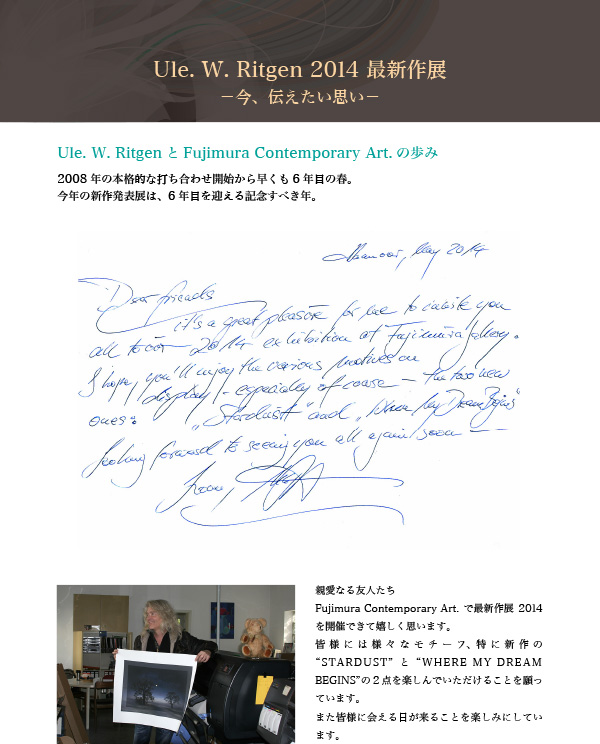 Ule. W. Ritgen 2014 最新作展
－今、伝えたい思い－
Ule. W. Ritgen と Fujimura Contemporary Art. の歩み
2008 年の本格的な打ち合わせ開始から早くも 6 年目の春。
今年の新作発表展は、6 年目を迎える記念すべき年。
May 2014
Dear friends
it's a great pleasure for me to invite you
all to our 2014 exhibition at Fujimura gallery.
I hope, you'll enjoy the various motives on
display, - especially of course - the two new
ones: „Stardust" and „Where My Dream Begins"
Looking forward to seeing you all again soon —
from,
親愛なる友人たち
Fujimura Contemporary Art. で最新作展 2014
を開催できて嬉しく思います。
皆様には様々なモチーフ、特に新作の
“STARDUST” と “WHERE MY DREAM
BEGINS”の２点を楽しんでいただけることを願っ
ています。
また皆様に会える日が来ることを楽しみにしてい
ます。